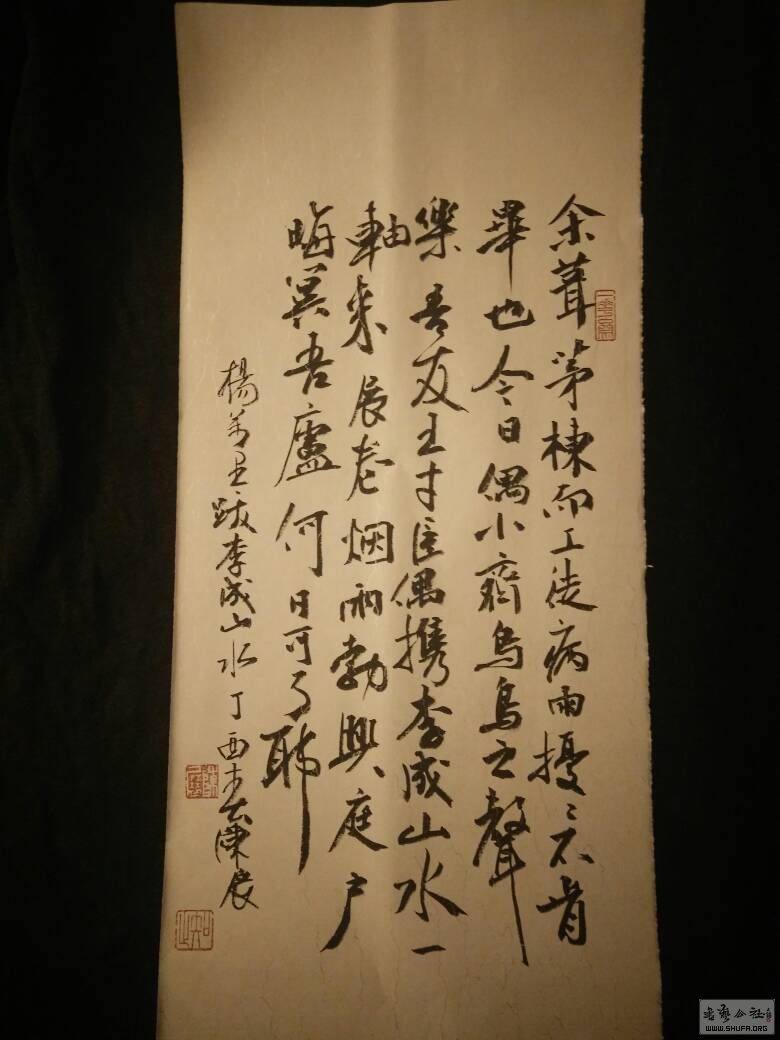 余葺茅棟而工徒病雨擾〻不肯
畢也今日偶小霽烏烏之聲
樂吾友王才臣偶携李成山水一
軸来展卷烟雨勃興庭户
晦冥吾廬何日可了耶
楊万里跋李成山水丁酉陳
書藝公社
WWW.SHUFA.ORG